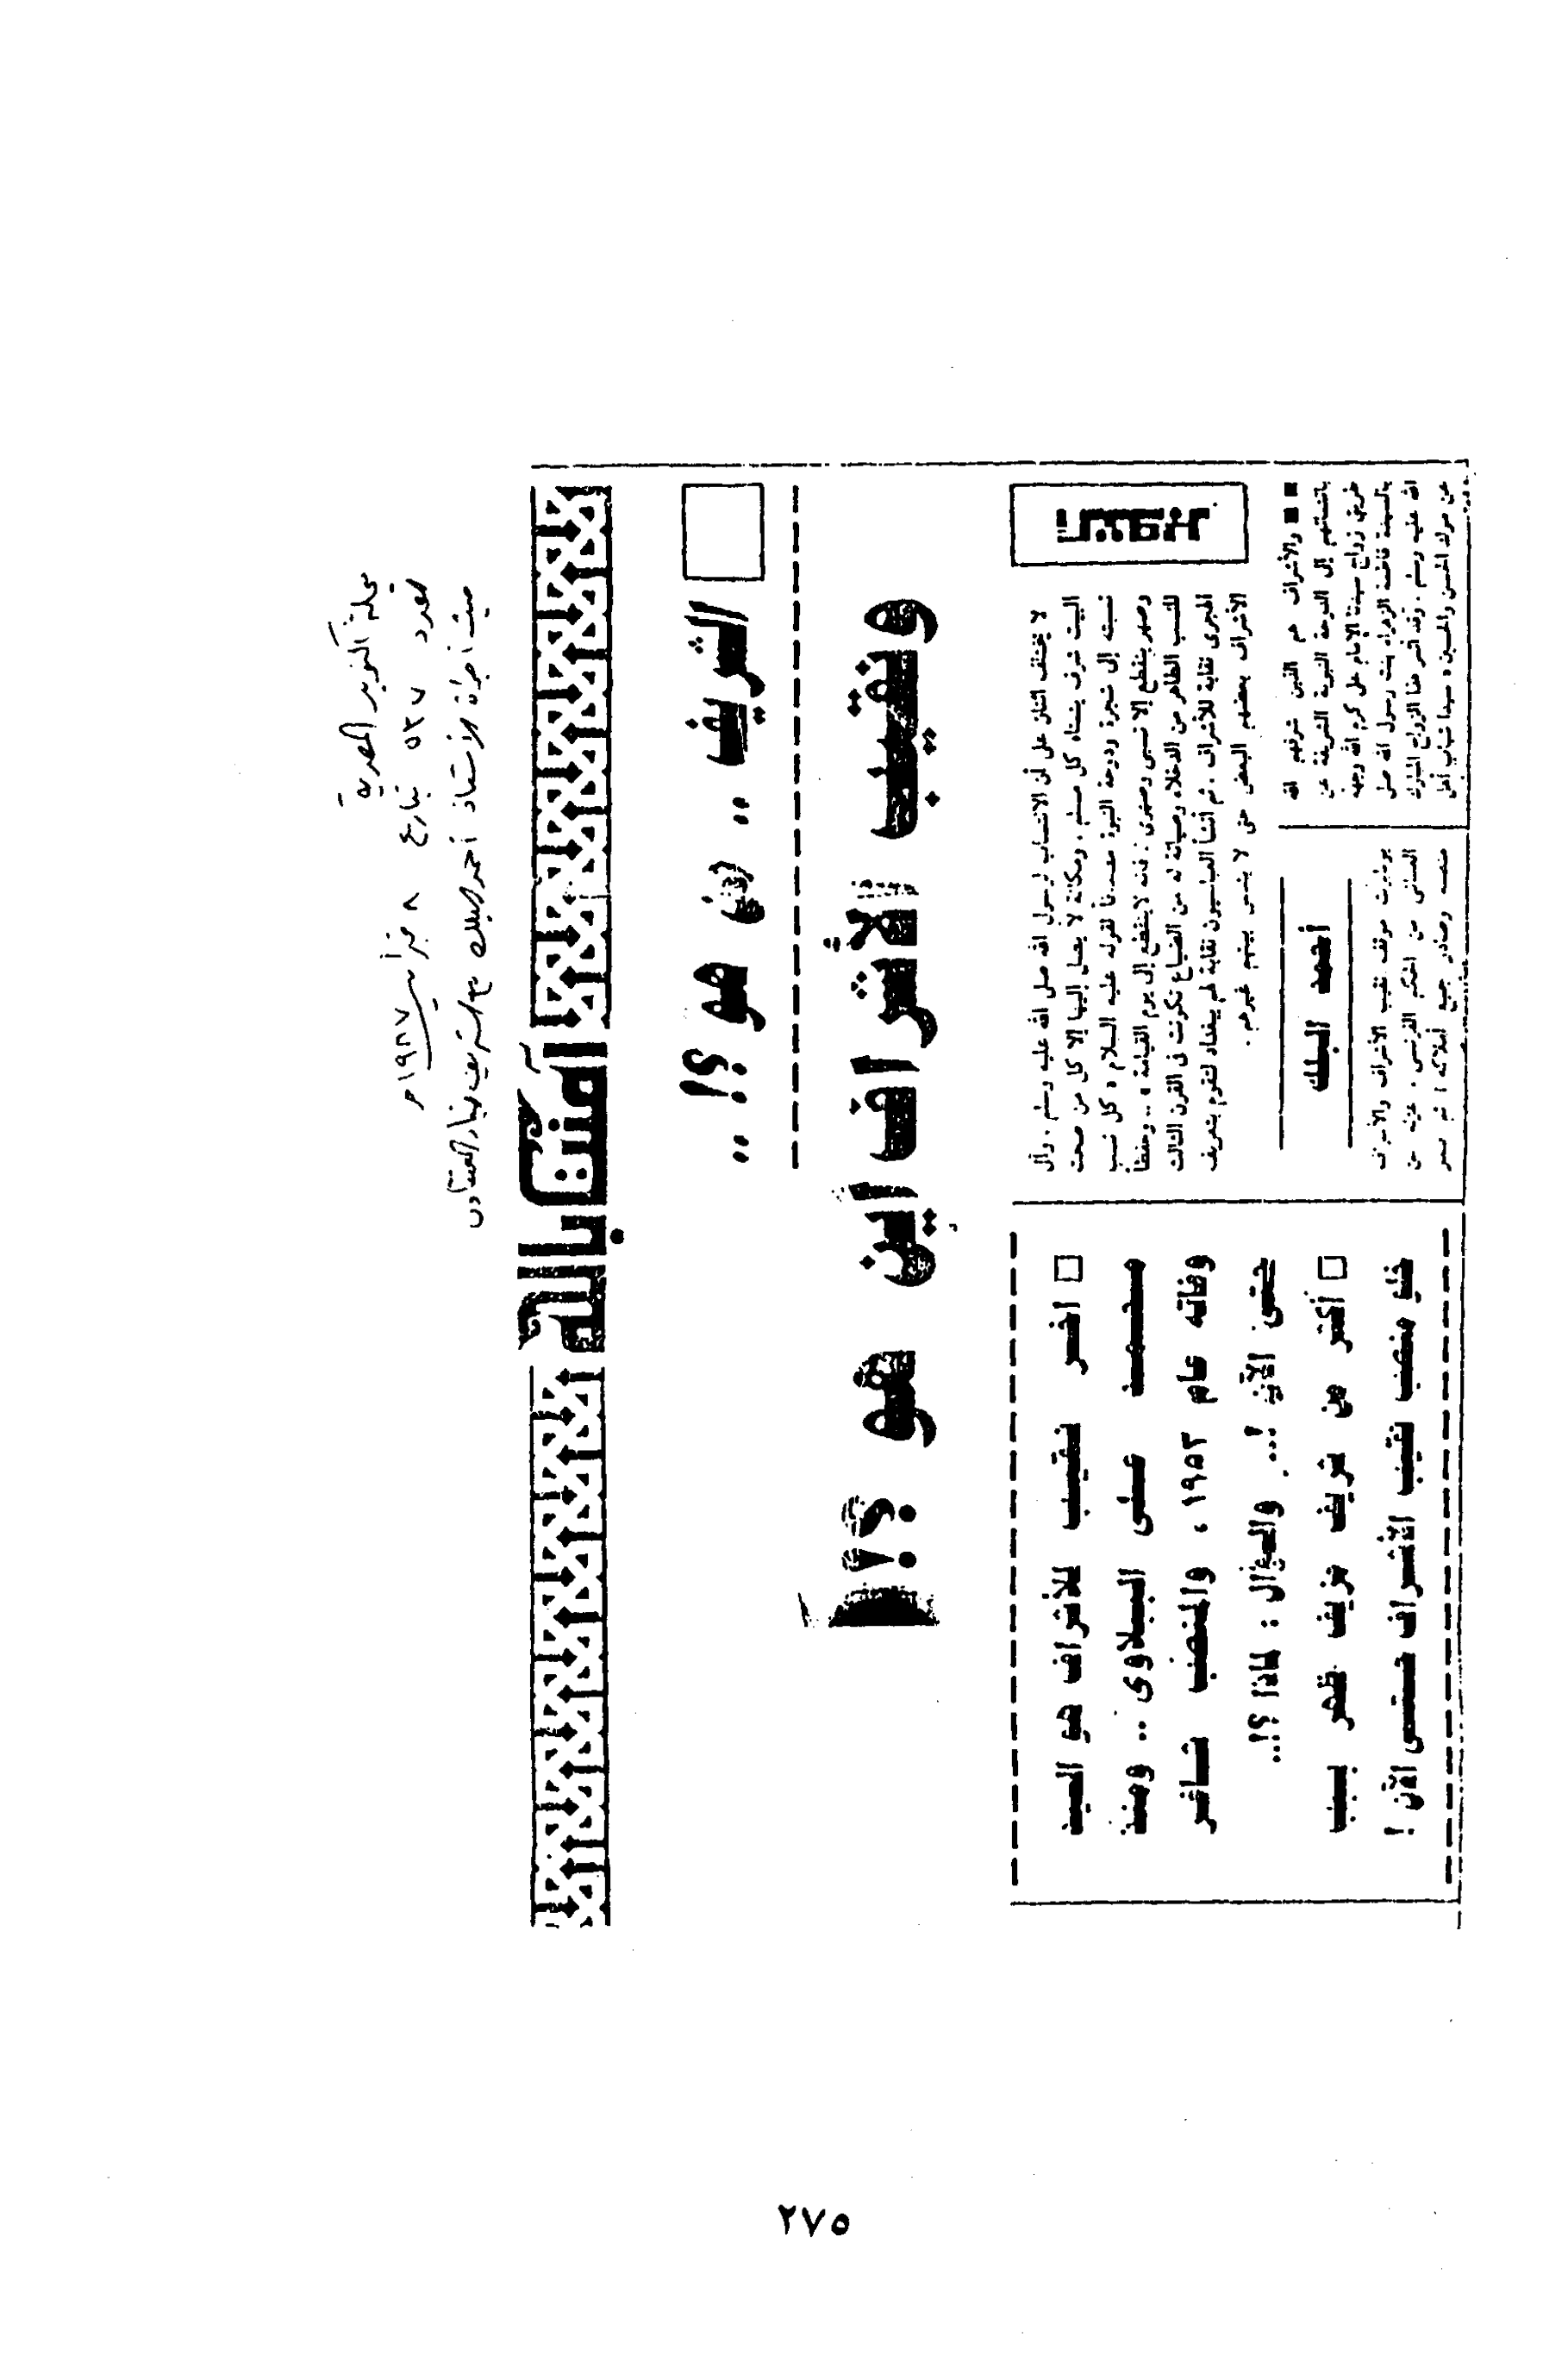 مجلة أكتوبر المصرية
العدد ٥٣٧ بتاريخ ٨ فبراير ١٩٨٧ م
حيث أجراه الأستاذ أحمد البلك مع الشريف
آمنت بالله
الشريف .. من هو ؟! ..
ونقيب الأشراف أين هو ؟!
□ آخر نقيب للأشراف هو السيد
محمد على الببلاوى .. ومنذ
وفاته عام ١٩٥٣ ، والمنصب شاغر
حتى الآن !... والسؤال : لماذا ؟!..
□ أكثر من شريف مزيف ظهر بسبب
خلو منصب نقيب الأشراف حتى الآن !
لا يختلف اثنان على أن الانتساب لرسول الله صلى الله عليه وسلم . وآل
البيت شرف يتمناه كل مسلم . ومكانة لا يصل إليها إلا كل من صحت
نسبته إلى شجرة ودوحة النبوة مصداقاً لقوله عليه السلام « كل نسب
وصهر ينقطع إلا نسبى وصهرى . فإنه لا ينقطع إلى يوم القيامة » .. وحفظاً
للنسب الطاهر من الدخلاء وصيانة له من الضياع تكونت فى القرن الثالث
الهجرى نقابة للأشراف . ثم أنشأ العباسيون نقابة لهم ببغداد لتقوم بتعريف
الأشراف بعضهم البعض حتى لا يندس بينهم غيرهم .
أحمد البلك
■■ والأشراف هم الذين شرفهم الله
بانتسابهم إلى الدوحة النبوية الشريفة عن
طريق زواج سيدنا الإمام على كرم الله وجهه
بالسيدة فاطمة الزهراء بنت رسول الله صلى
الله عليه وسلم . وقد أثمر هذا الزواج المبارك
عن مولد الحسن والحسين « سيدا شباب أهل
بونابرت موقف نقيب الأشراف والأشراف
العدائى من الحكم الفرنسى ، عزله من
منصبه وصادر جميع أملاكه ! ثم
٢٧٥